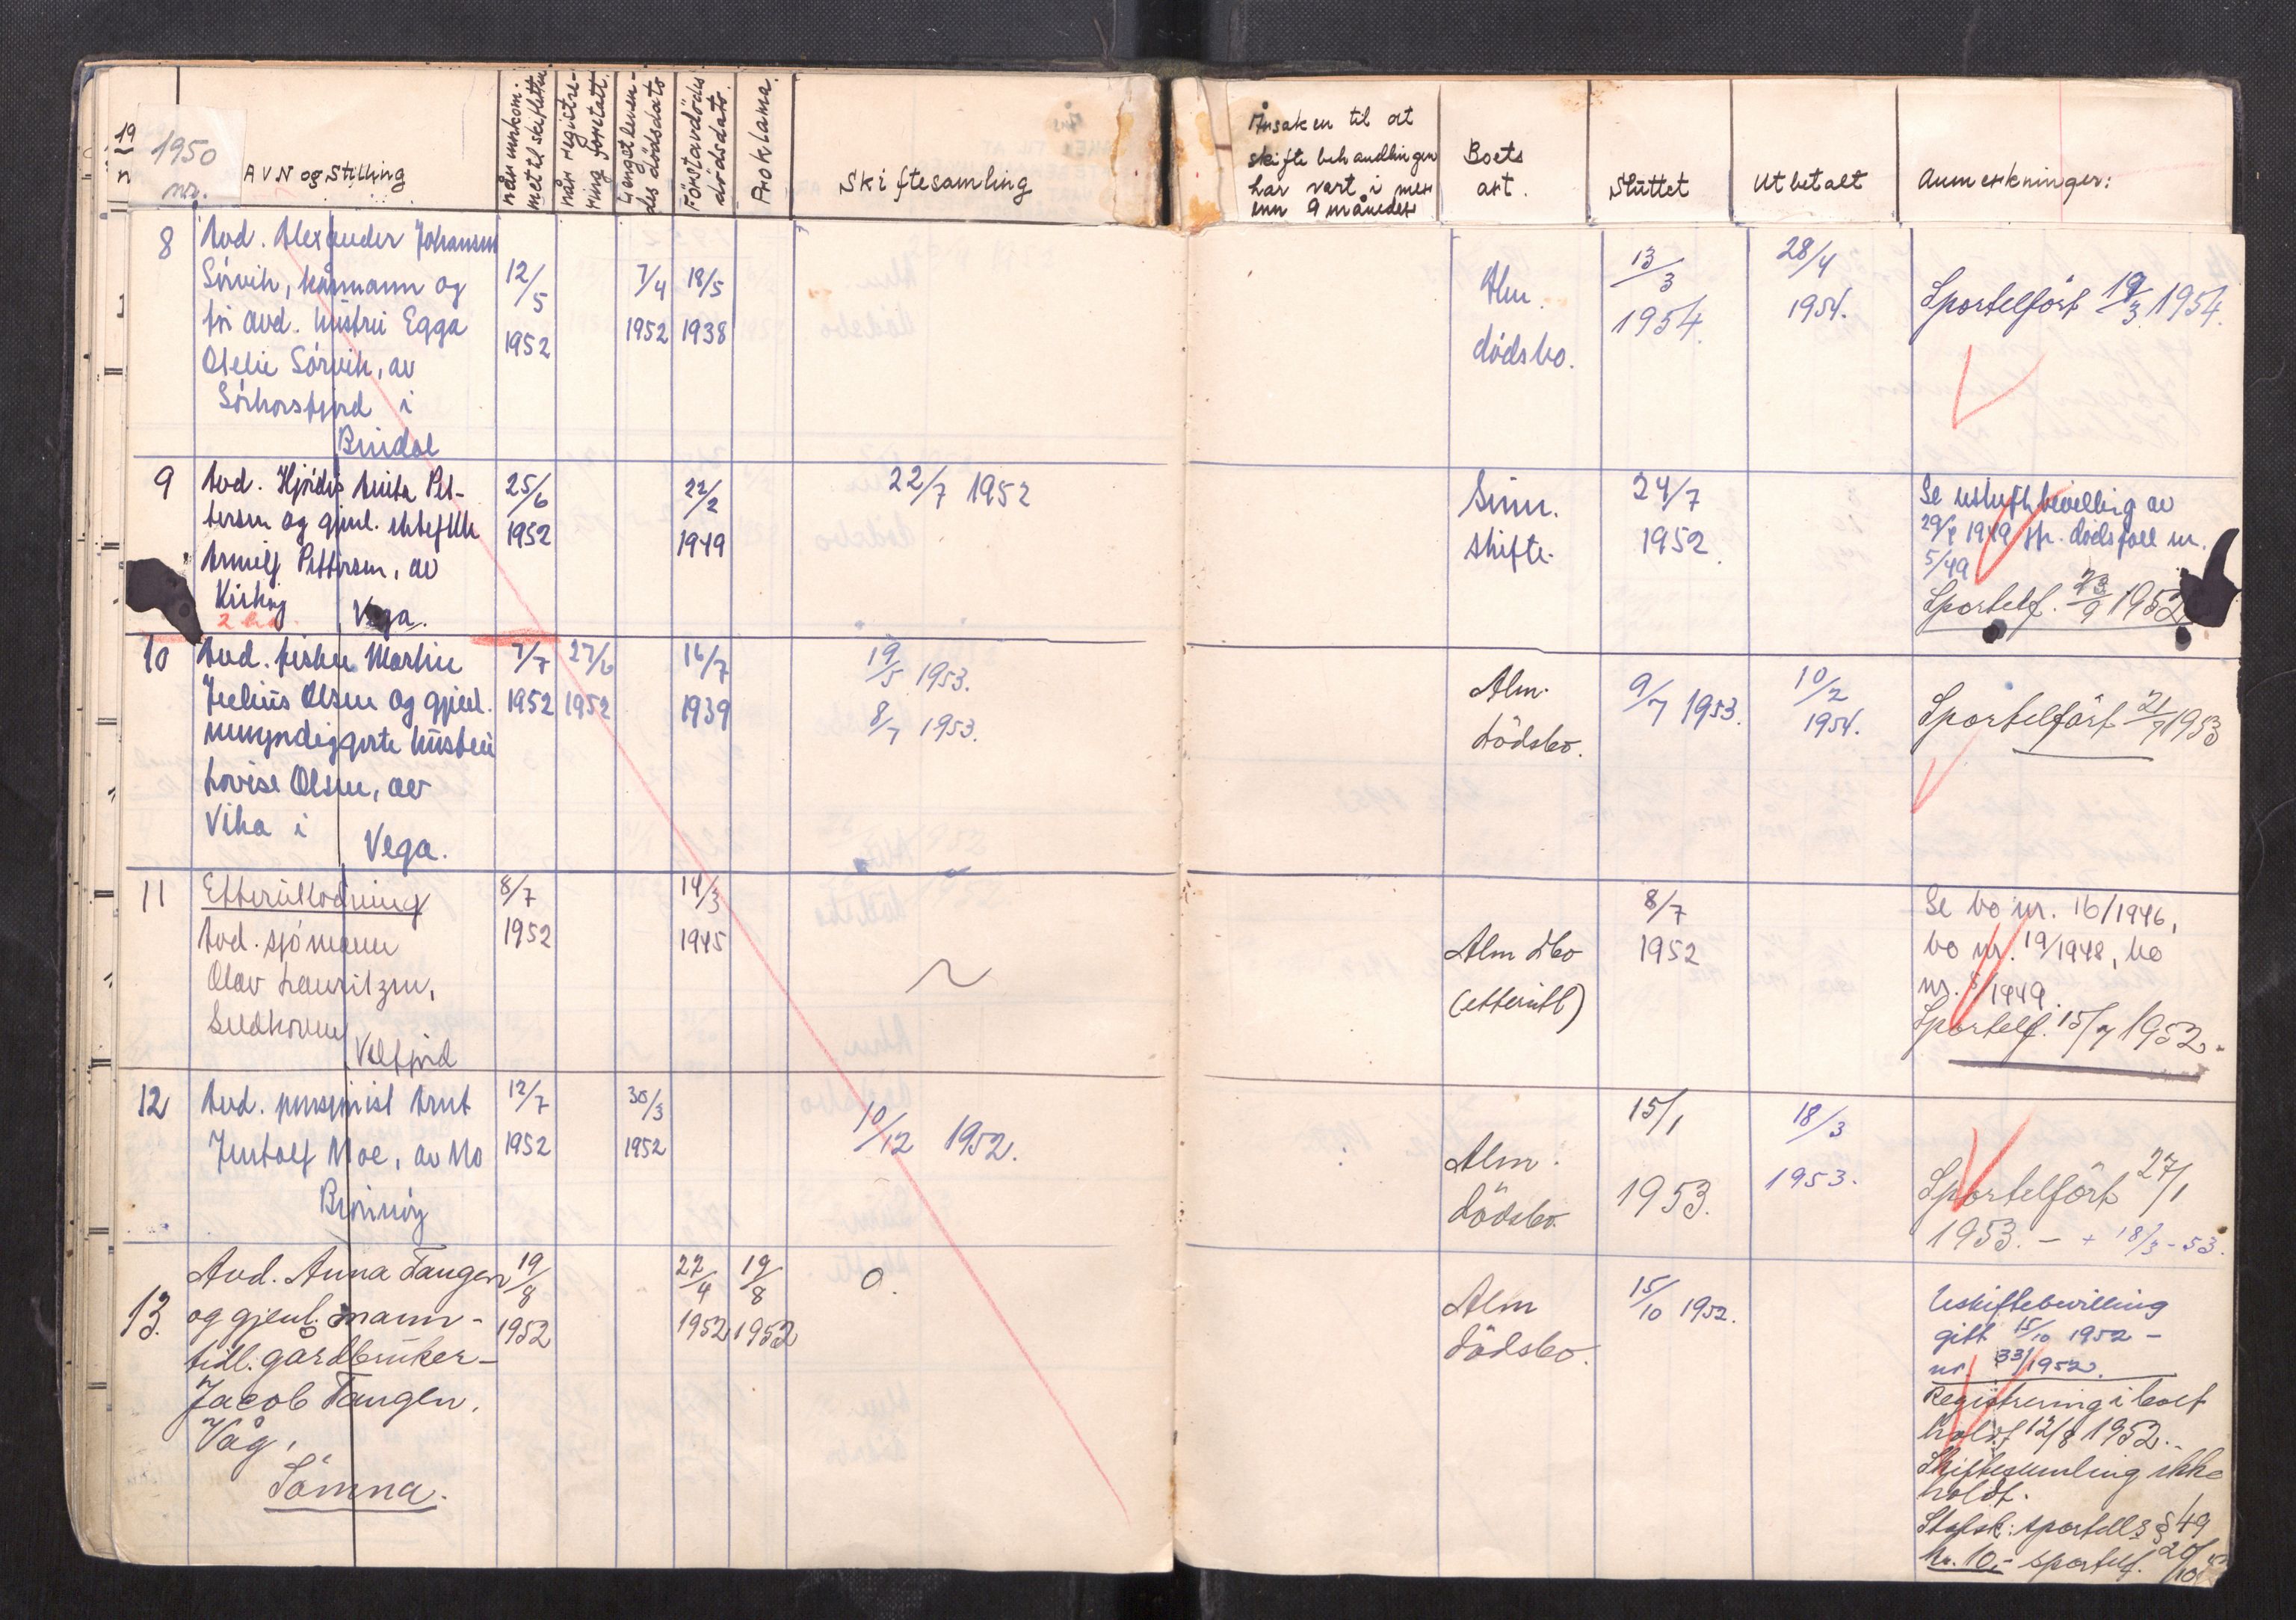 19
n
1950
nr.
A V N og Stilling
Når innkommet til skifteretten
Når registrering foretatt.
Lengstlevendes dødsdato
Förstavdödes dödsdato.
Proklama.
Skiftesamling
Årsaken til at
skifte behandlingen
har vart i mer
enn 9 måneder
Boets
art.
Sluttet
Utbetalt
Anmerkninger:
8
Avd. Alexander Johansen
Sørvik, kårmann og
før avd. hustru Egga
Oselie Sørvik, av
Sørhorsfjord i
Bindal
12/5
1952
7/4
1952
18/5
1938
Alm.
dødsbo.
13/3
1954.
28/4
1954.
Sportelfört 19/3 1954.
9
Avd. Hjørdis Anita Pet-
tersen og gjenl. ektefelle
Arnulf Pettersen, av
Kirkøy
Vega.
25/6
1952
22/2
1949
22/7 1952
Sam.
skifte.
24/7
1952.
Se uskiftebevilling av
1949 jfr. dødsfall nr.
5/49
Sportelf. 23/9 1952
10
Avd. fisker Martin
Julius Olsen og gjenl.
umyndiggjorte hustru
Lovise Olsen, av
Vika i
Vega.
7/7
1952
27/6
1952
16/7
1939
19/5 1953.
8/7 1953.
Alm.
dödsbo.
9/7 1953.
10/2
1954.
Sportelfört 21/7 1953
11
Etterutlodning
Avd. sjømann
Olav Lauritzen,
Velfjord
8/7
1952
14/3
1945
~
Alm dbo
(etterutl)
8/7
1952
Se bo nr. 16/1946,
bo nr. 19/1948, bo
nr. 5/1949.
Sportelf. 15/7 1952.
12
Avd. pensjonist Arnt
Jentolf Moe, av Mo
Brønnøy
12/7
1952
30/3
1952
10/12 1952.
Alm.
dödsbo.
15/1
1953.
18/3
1953.
Sportelfört 27/1
1953. - + 18/3 - 53.
13.
Avd. Anna Tangen
og gjenl. mann -
tidl. gårdbruker -
Jacob Tangen.
Våg,
Sömna.
19/8
1952
22/4
1952
19/8
1952
0.
Alm
dödsbo.
15/10 1952.
Uskiftebevilling
gitt 15/10 1952 -
nr. 33/1952.
Registrering i boet
holdt 12/8 1952.
Skiftesamling ikke
holdt.
Statsk: sportell § 49
kr. 10,- sportelf. 20/10